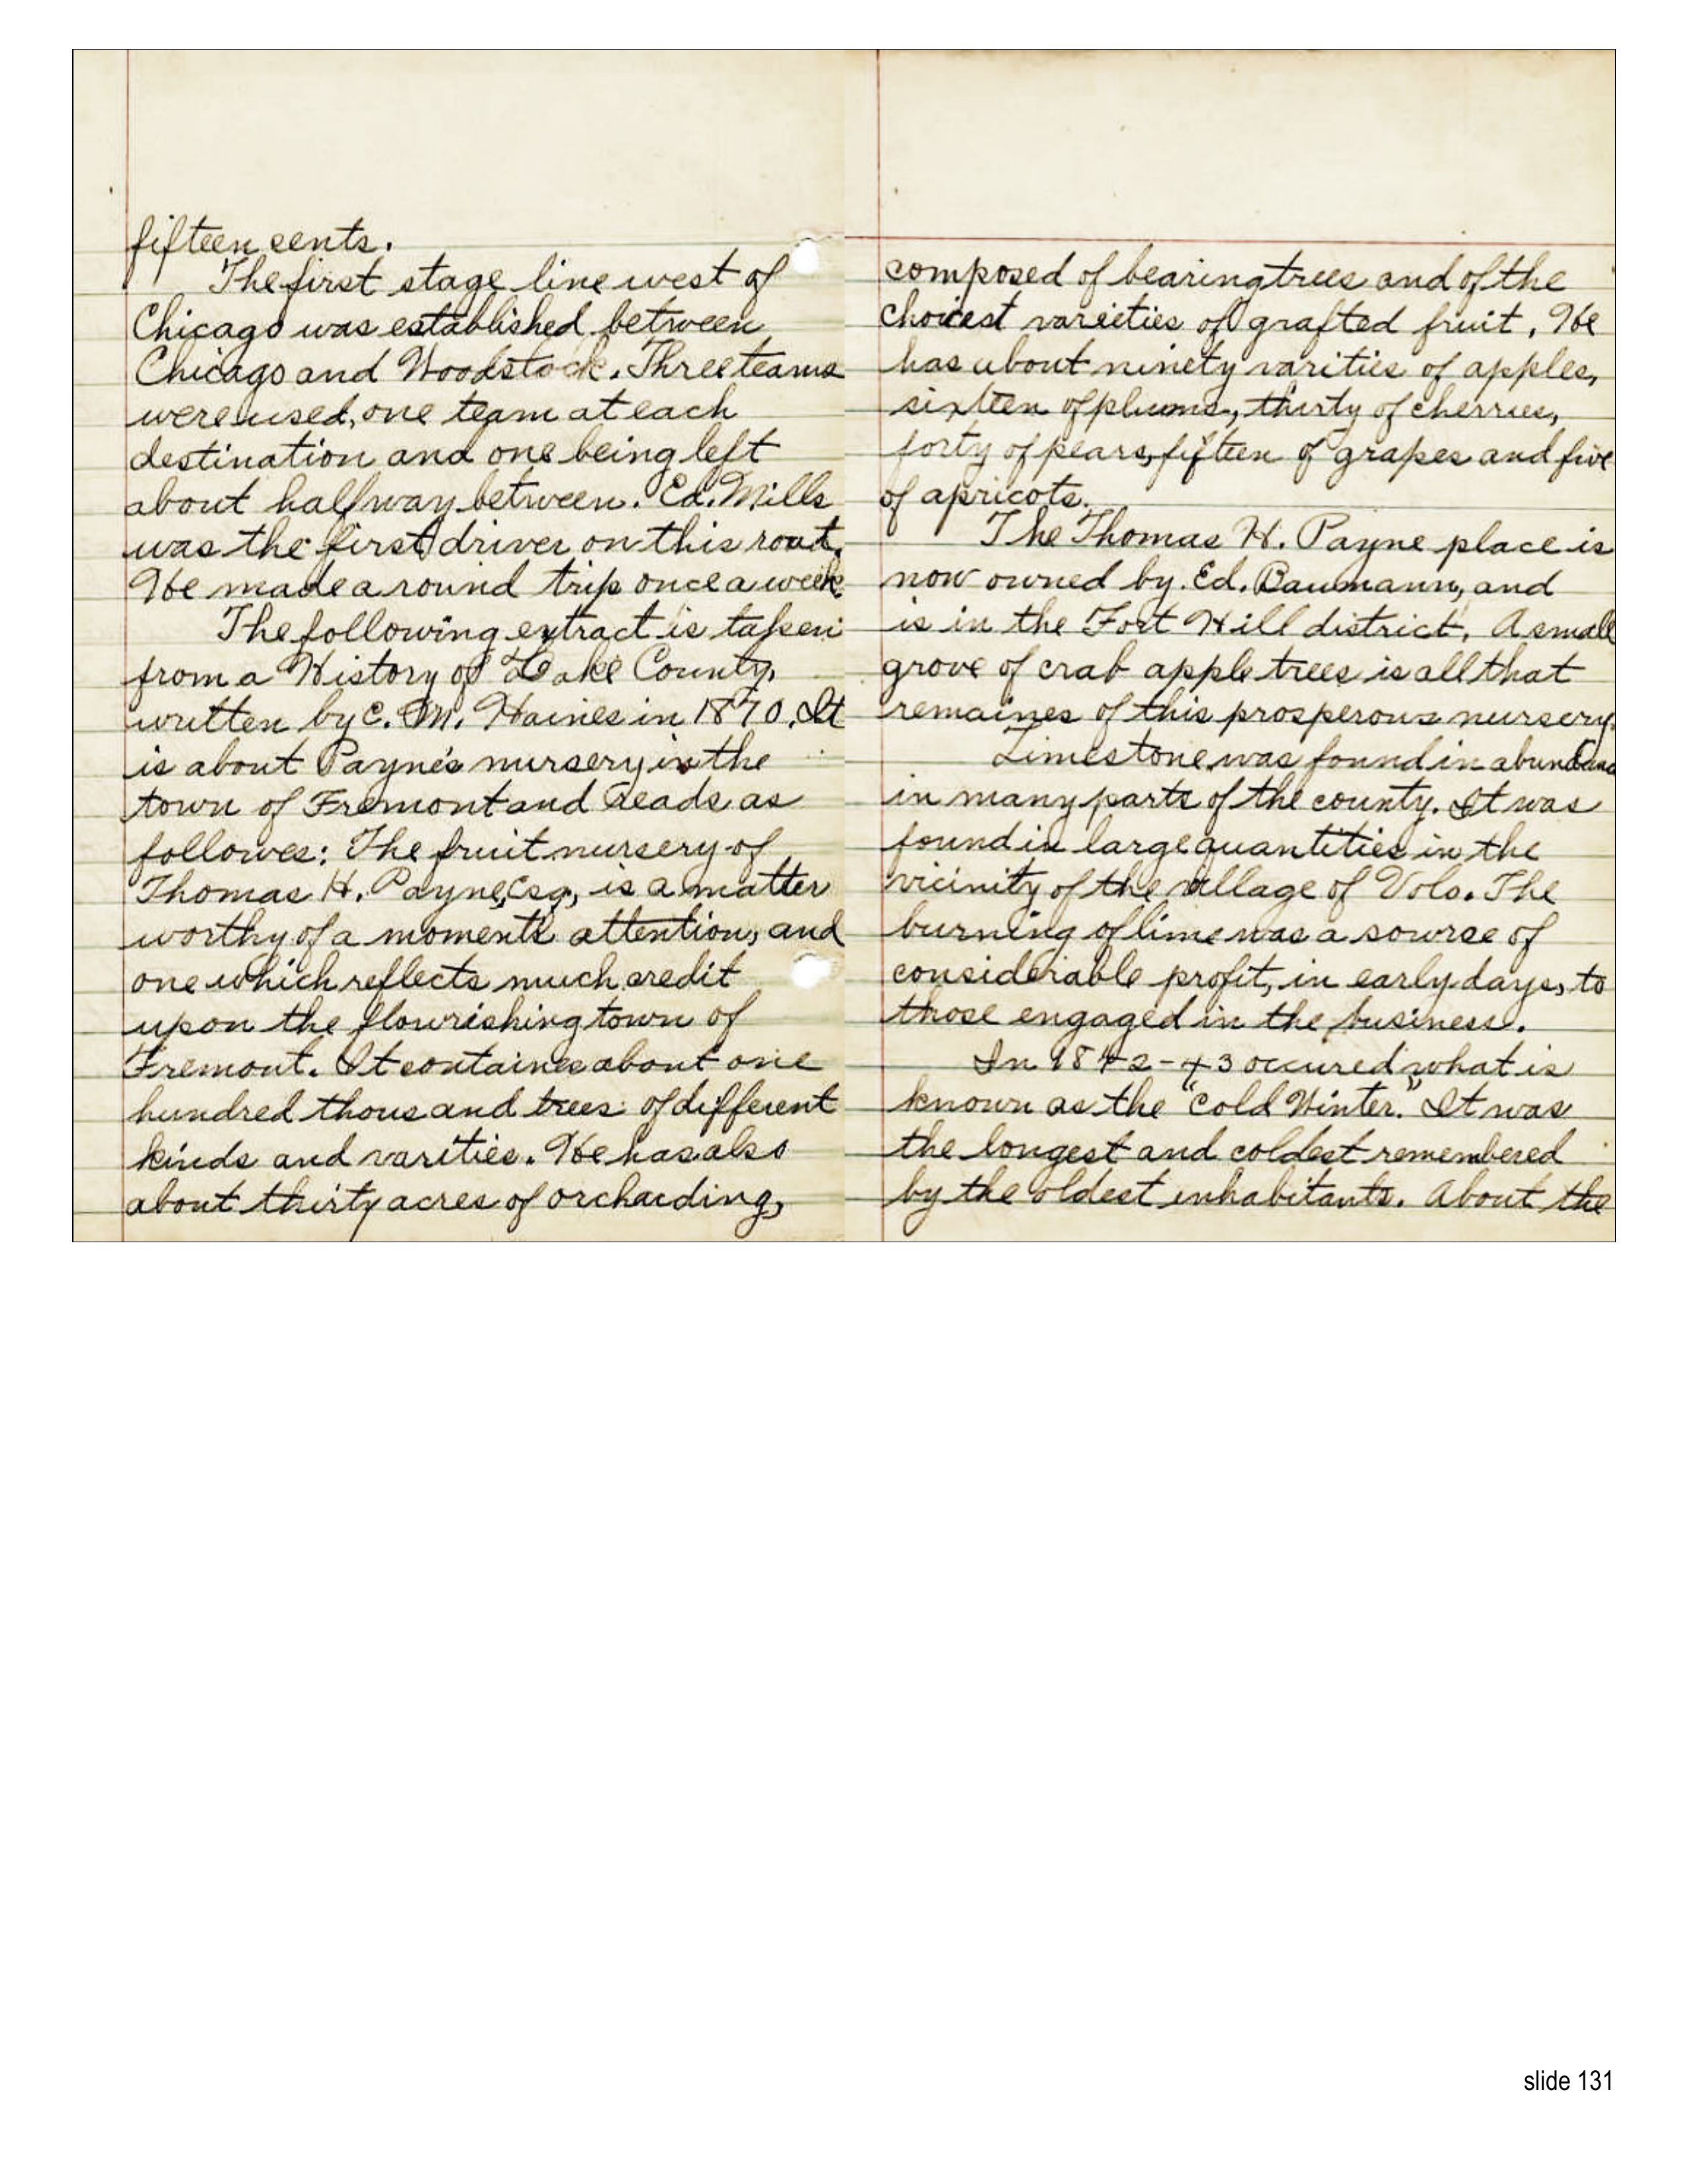 fifteen cents.
The first stage line west of
Chicago was established between
Chicago and Woodstock. Three teams
were used, one team at each
destination and one being left
about halfway between. Ed. Mills
was the first driver on this rout.
He made a round trip once a week.
The following extract is taken
from a History of Lake County,
written by C. M. Haines in 1870. It
is about Payne's nursery in the
town of Fremont and reads as
followes: The fruit nursery of
Thomas H. Payne, Esq., is a matter
worthy of a moment's attention, and
one which reflects much credit
upon the flourishing town of
Fremont. It containes about one
hundred thousand trees of different
kinds and varities. He has also
about thirty acres of orcharding,
composed of bearing trees and of the
choicest varieties of grafted fruit. He
has about ninety varities of apples,
sixteen of plums, thirty of cherries,
forty of pears, fifteen of grapes and five
of apricots.
The Thomas H. Payne place is
now owned by Ed. Baumann, and
is in the Fort Hill district. A small
grove of crab apple trees is all that
remaines of this prosperous nursery.
Limestone was found in abundanc
in many parts of the county. It was
found in large quantities in the
vicinity of the village of Volo. The
burning of lime was a sourse of
considerable profit, in early days, to
those engaged in the business.
In 1842-43 occured what is
known as the "Cold Winter." It was
the longest and coldest remembered
by the oldest inhabitants. About the
slide 131